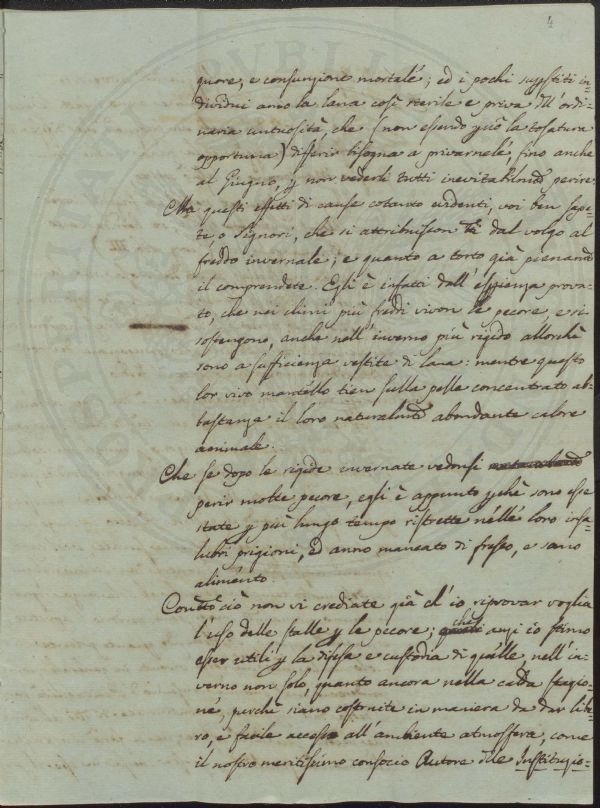 4
guore, e consunzione mortale; ed i pochi susistiti in-
dividui anno la lana così sterile e priva dell'ordi-
naria untuosità, che (non essendo p ciò la tosatura
opportuna) differir bisogna a privarnele, fino anche
al Giugno, p non vederli tutti inevitabilmte perire.
Ma questi effetti di cause cotanto evidenti, voi ben sape-
te o Signori, che si attribuiscon dal volgo al
freddo invernale; e quanto a torto già pienamte
il comprendete. Egli è infatti dall'esperienza prova-
to, che nei climi più freddi vivon le pecore, e si
sostengono, anche nell'inverno più rigido allorchè
sono a suficienza vestite di lana: mentre questo
lor vivo mantello tien sulla pelle concentrato ab-
bastanza il loro naturalmte abondante calore
animale.
Che se dopo le rigide invernate vedonsi
perir molte pecore, egli è appunto pchè sono esse
state p più lungo tempo ristrette nelle loro insa-
lubri prigioni, ed anno mancato di fresco, e sano
alimento.
Con tto ciò non vi crediate già ch'io riprovar voglia
l'uso delle stalle p le pecore; che anzi io stimo
esser utili p la difesa e custodia di quelle, nell'in-
verno non solo, quanto ancora nella calda stagio-
ne, purchè siano costruite in maniera da dar libe-
ro, e facile accesso all'ambiente atmosfera, come
il nostro meritissimo consocio Autore delle Instituzio-